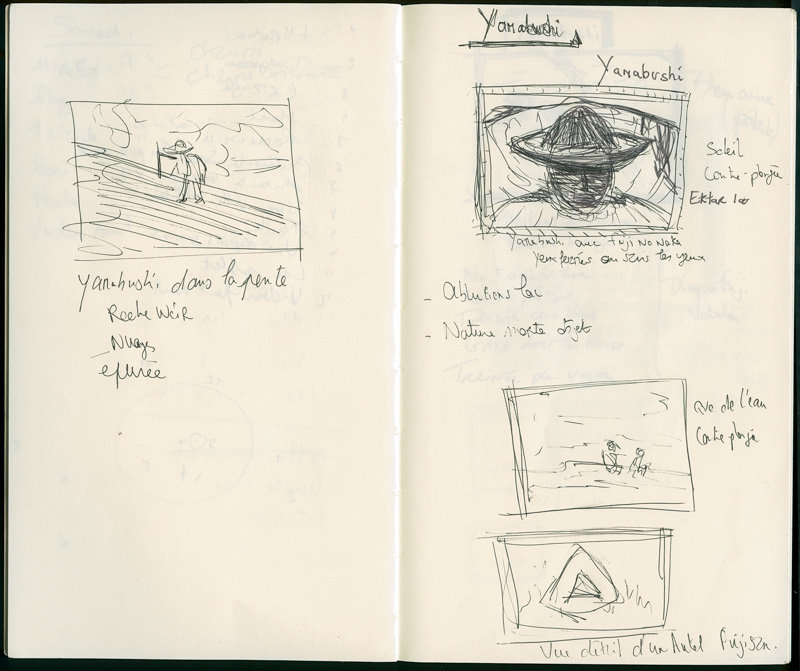 Yamabushi dans la pente
Roche Noir
Nuages
épurée
Yamabushi
Yamabushi
Soleil
Contre-plongée
Ektar 100
Yamabushi avec Fuji No Naka
Yeux fermés ou sans les yeux
- Ablutions lac
- Nature morte objets
que de l'eau
Contre plongée
Vue détail d'un Autel Fujisan.